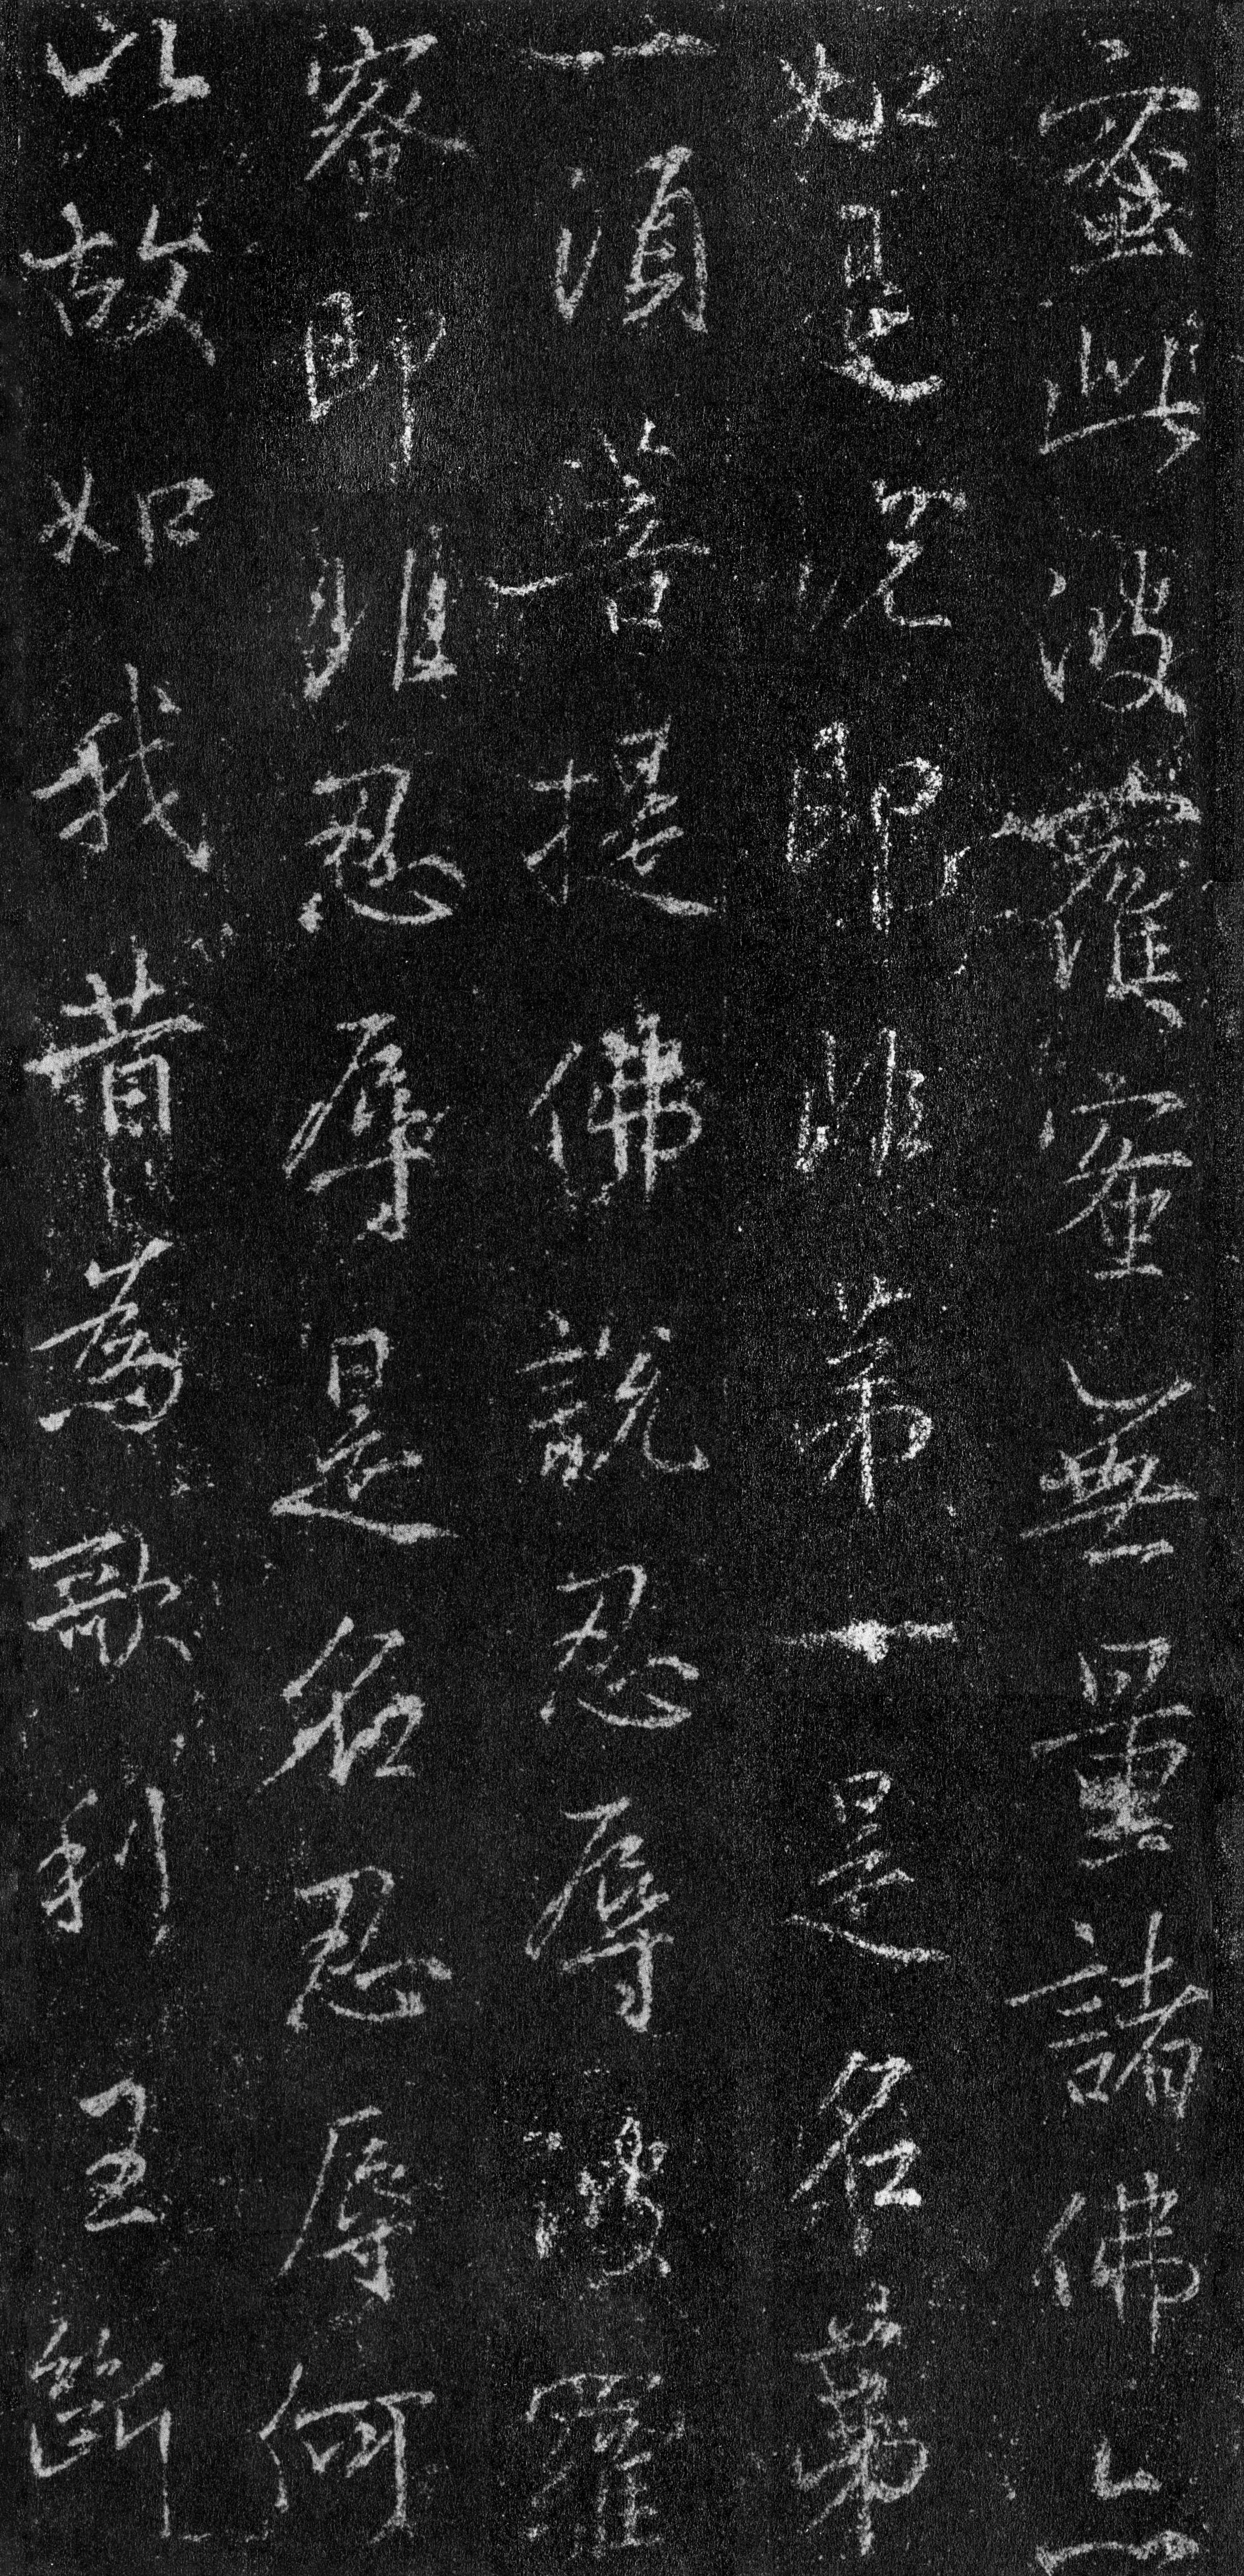 蜜此波羅蜜無量諸佛
如是說即非第一是名第
一須菩提佛說忍辱波羅
密即非忍辱是名忍辱何
以故如我昔為歌利王斷